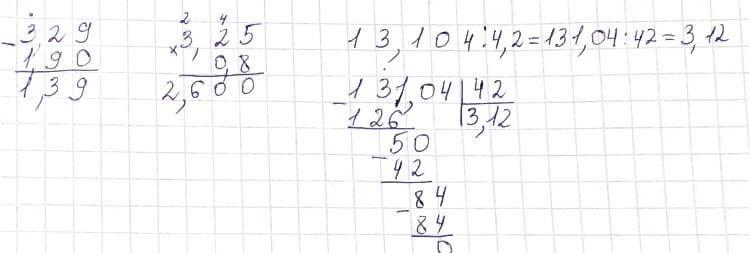 3,29
- 1,90
1,39
2 4
3,25
× 0,8
2,600
13,104:4,2=131,04:42=3,12
131,04 | 42
- 126 | 3,12
50
- 42
84
- 84
0